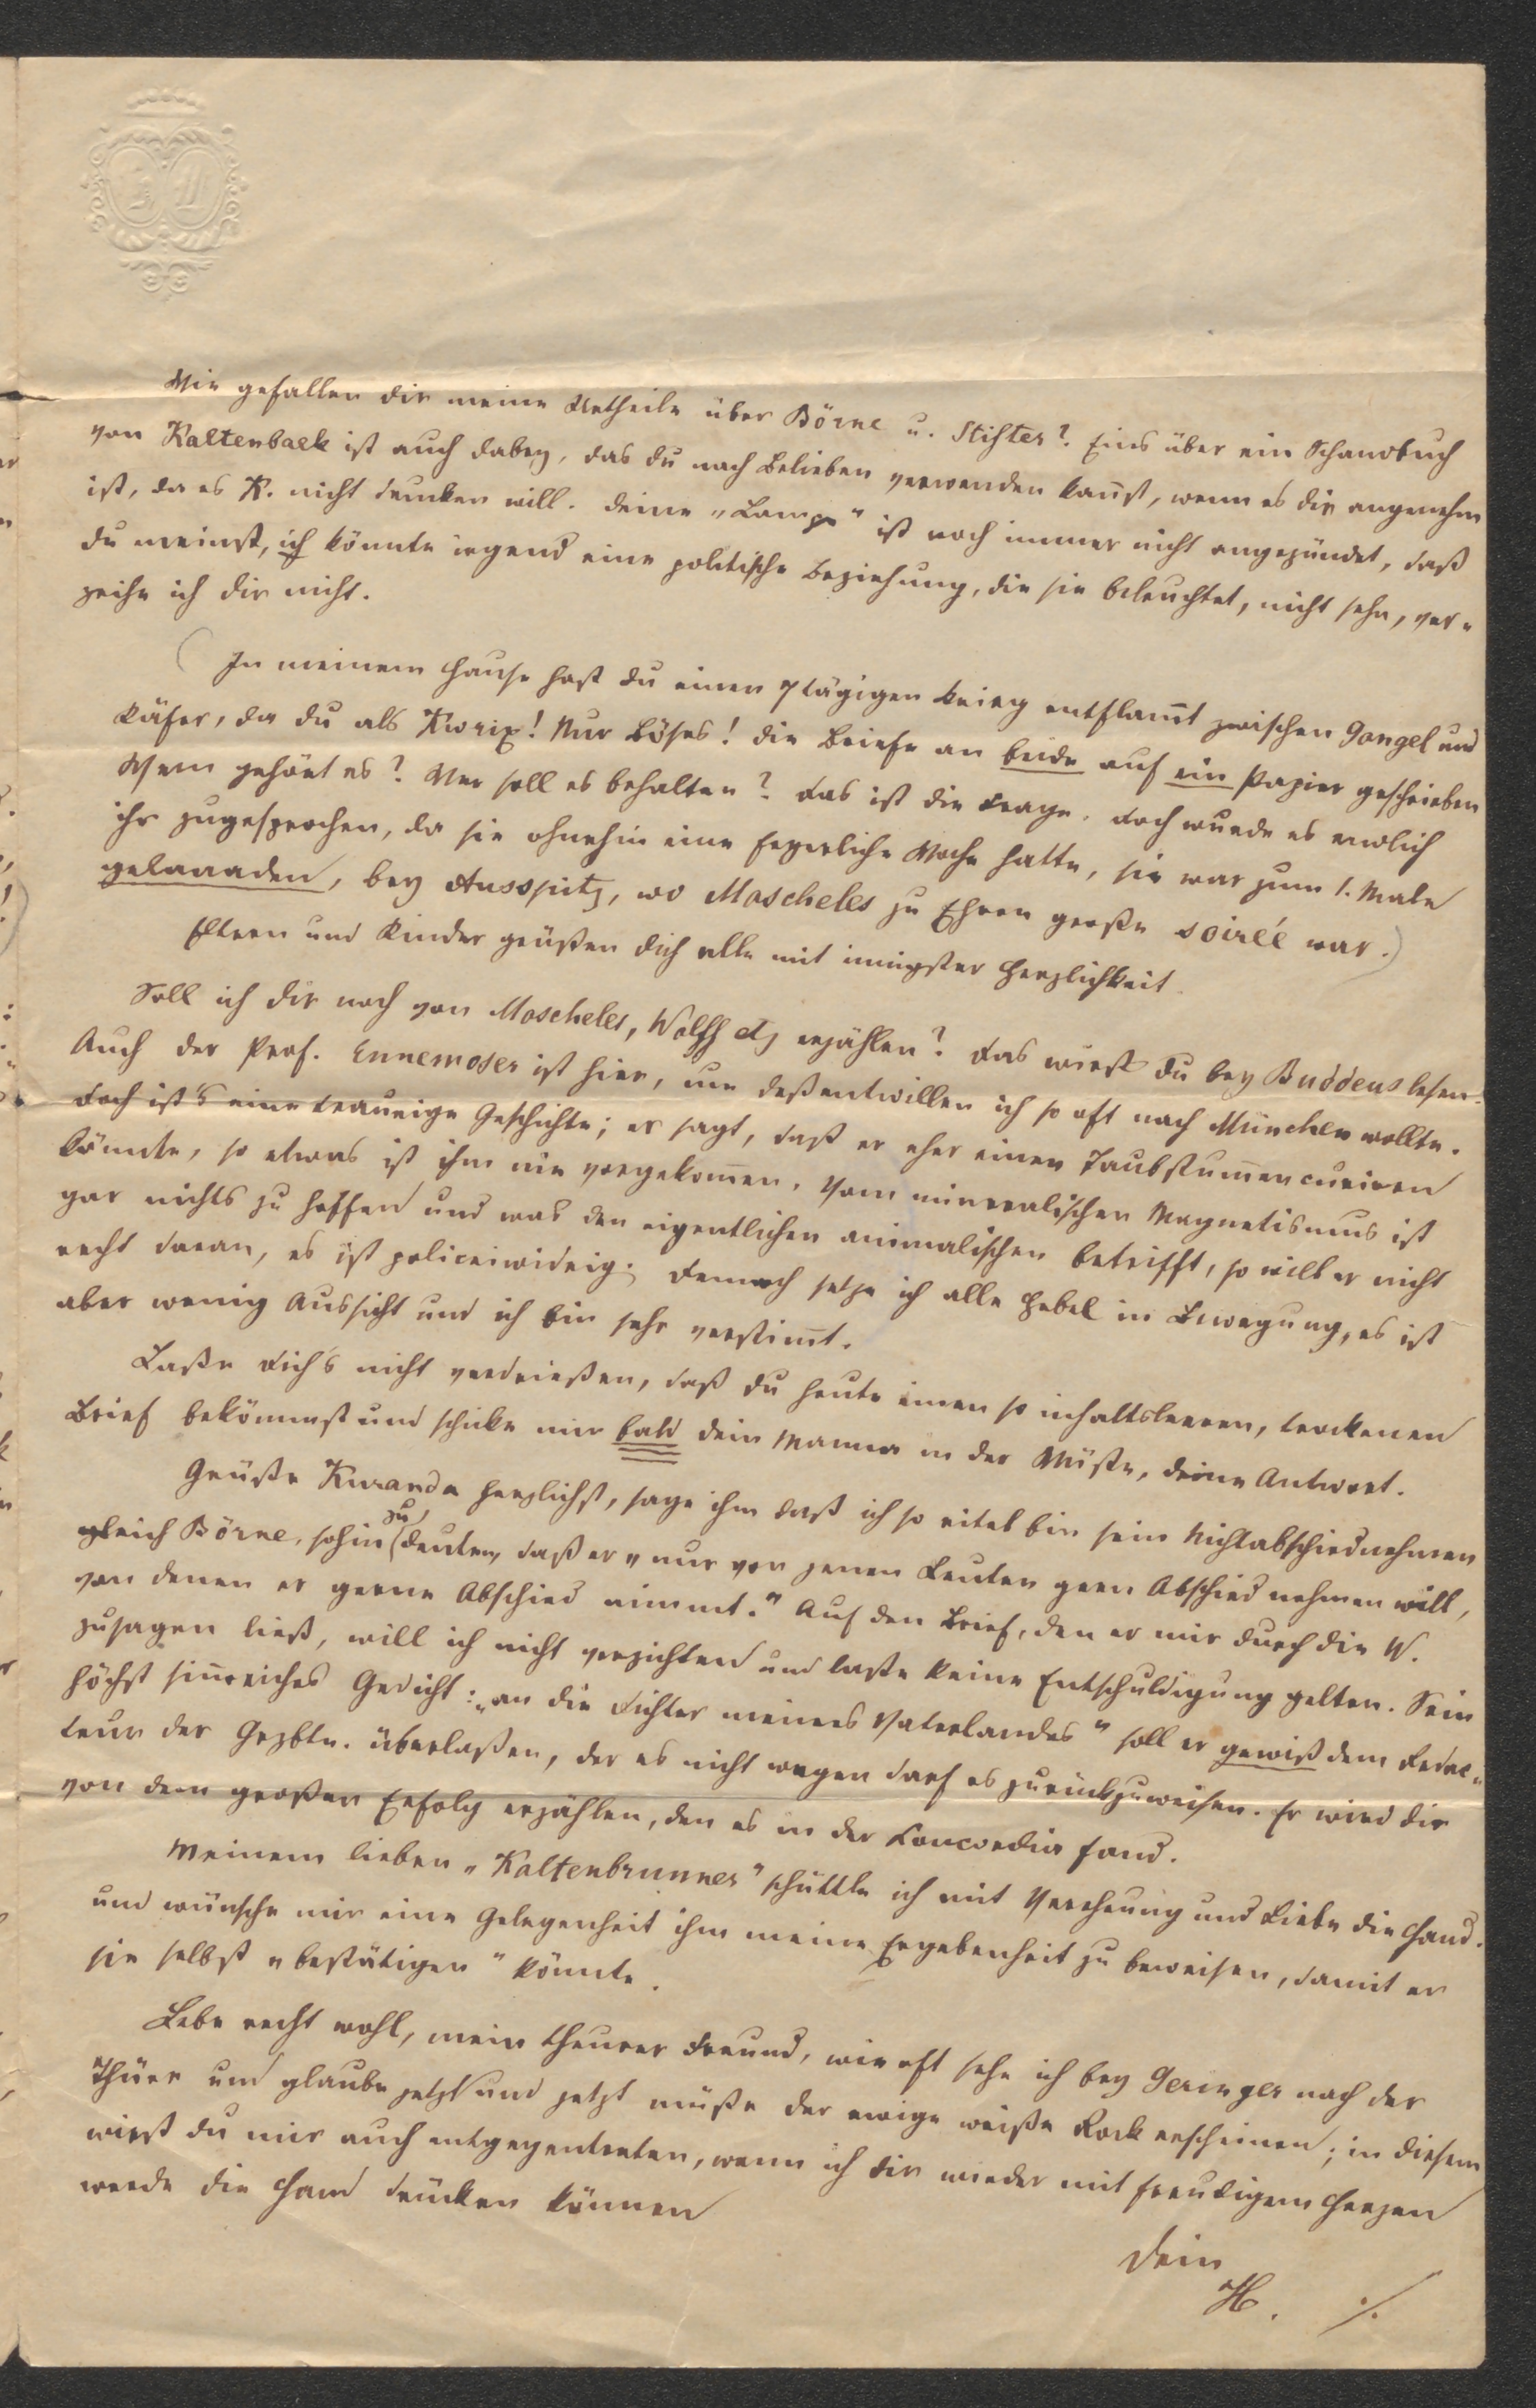 Wie gefallen dir meine Urtheile über Börne u. Stifter? Eins über ein Schandbuch
von Kaltenbaek ist auch dabey, das du nach Belieben verwenden kan̄st, wenn es dir angenehm
ist, da es K. nicht drucken will. Deine „Lampe" ist noch immer nicht angezündet, daß
du meinst, ich könnte irgend eine politische Beziehung, die sie beleuchtet, nicht sehn, ver-
zeihe ich dir nicht.
(In meinem Hause hast du einen 7tägigen Krieg entflam̄t zwischen Gangel und
Käfer, da du als Kwrix! Nur Böses! die Briefe an beide auf ein Papier geschrieben
Wem gehört es? Wer soll es behalten? Das ist die Frage. Doch wurde es endlich
ihr zugesprochen, da sie ohnehin eine sehr Woche hatte, sie war zum 1. Male
gelaaaden, bey Ausspitz, wo Moscheles zu Ehren große soireé war.)
Eltern und Kinder grüßen dich alle mit innigster Herzlichkeit.
Soll ich dir noch von Moscheles, Wolff etz erzählen? Das wirst du bey Buddeus lesen.
Auch der Prof. Ennemoser ist hier, um deßentwillen ich so oft nach München wollte.
Doch ist's eine traurige Geschichte; er sagt, daß er eher einen Taubstum̄en curiren
könnte, so etwas ist ihm nie vorgekom̄en. Vom mineralischen Magnetismus ist
gar nichts zu hoffen und was den eigentlichen animalischen betrifft, so will er nicht
recht daran, es ist policeiwidrig. Dennoch setze ich alle Hebel in Bewegung, es ist
aber wenig Aussicht und ich bin sehr verstim̄t.
Laße dich's nicht verdrießen, daß du heute einen so inhaltsleeren, trockenen
Brief bekömmst und schicke mir bald dein Manna in der Wüste, deine Antwort.
Grüße Kuranda herzlichst, sage ihm daß ich so eitel bin sein Nichtabschiednehmen
gleich Börne, sohin zu deuten, daß er „nur von jenen Leuten gern Abschied nehmen will,
von denen er gerne Abschied nimmt." Auf den Brief, den er mir durch die W.
zusagen ließ, will ich nicht verzichten und laße keine Entschuldigung gelten. Sein
höchst sin̄reiches Gedicht: „an die Dichter meines Vaterlandes" soll er gewiß dem Redac-
teur der Grzbtn. überlaßen, der es nicht wagen darf es zurückzuweisen. Er wird dir
von dem großen Erfolg erzählen, den es in der Concordia fand.
Meinem lieben „Kaltenbrunner" schüttle ich mit Verehrung und Liebe die Hand.
und wünsche mir eine Gelegenheit ihm meine Ergebenheit zu beweisen, damit er
sie selbst „bestätigen" könnte.
Lebe recht wohl, mein theurer Freund, wie oft sehe ich bey Geringer nach der
Thüre und glaube jetzt und jetzt müße der ewige weiße Rock erscheinen; in diesem
wirst du mir auch entgegentreten, wenn ich dir wieder mit freudigem Herzen
werde die Hand drücken können
Dein
H. ./.